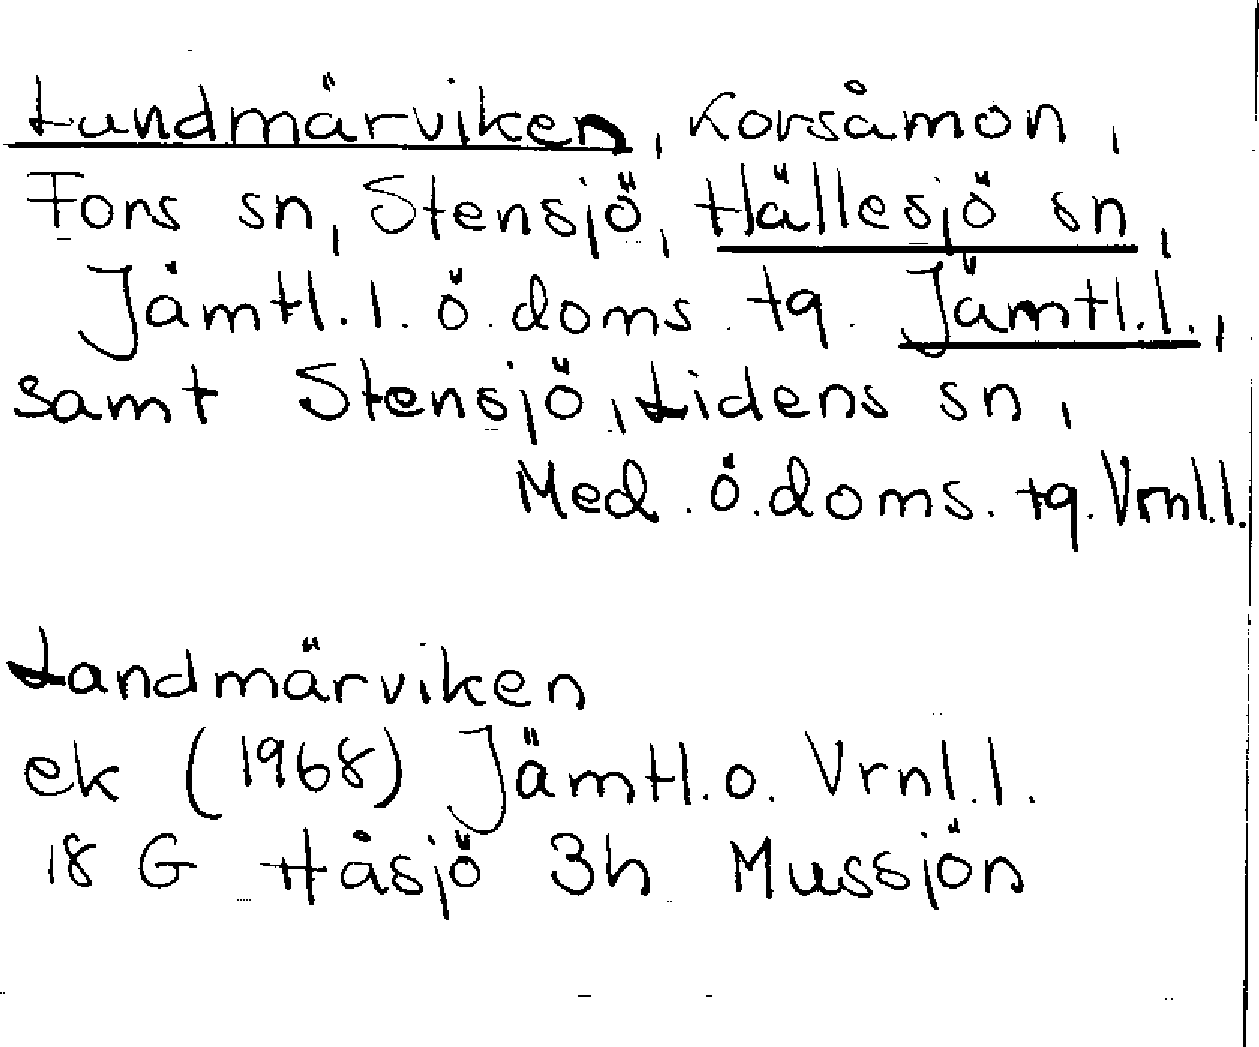 Lundmärviken, Korsåmon,
Fors sn, Stensjö, Hällesjö sn,
Jämtl.l. ö. doms. tq. Jämtl.l.,
samt Stensjö, Lidens sn,
Med. ö. doms. tq. Vrnl.l.
Landmärviken
ek (1968) Jämtl.o. Vrnl.l.
18 G Håsjö 3h Mussjön